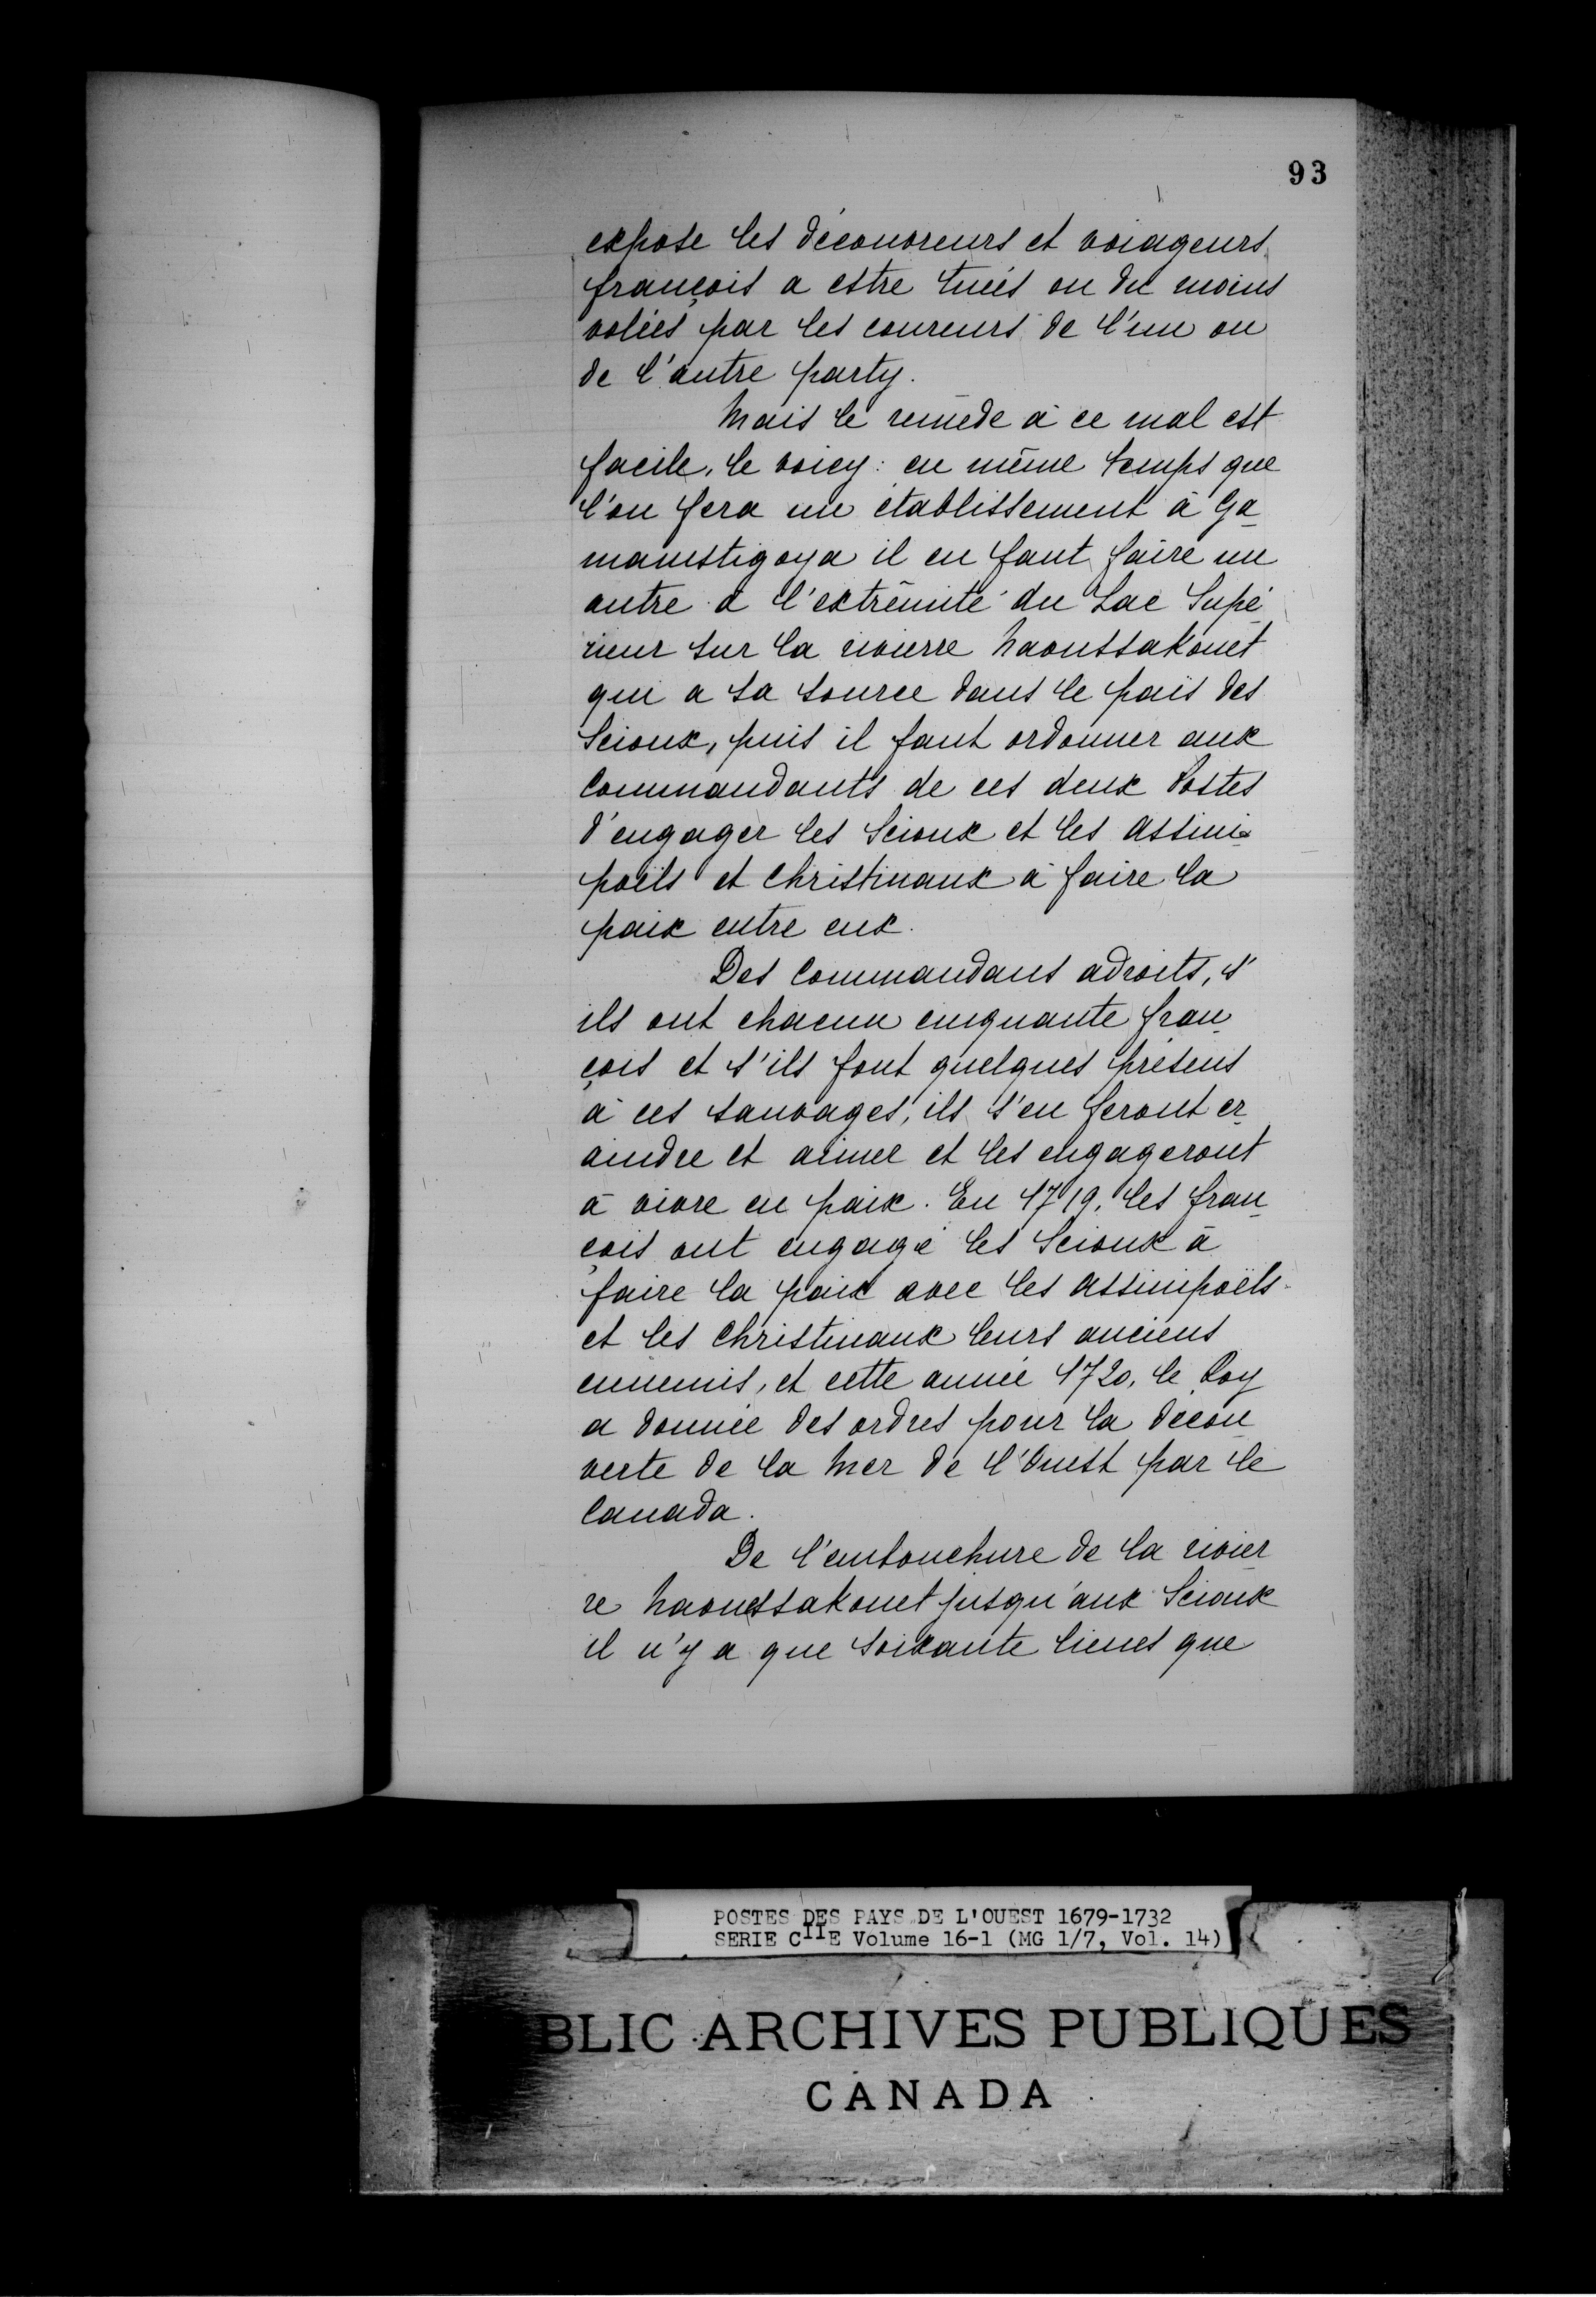 93
expose les découvreurs et voiageurs
françois a estre tués ou du moins
volés par les coureurs de l'un ou
de l'autre party.
Mais le remède à ce mal est
facile, le voicy: en même temps que
l'on fera un établissement à Ga
manistigoya il en faut faire un
autre a l'extrêmité du Lac Supé
rieur sur la rivierre Naoussakouet
qui a sa source dans le païs des
Scioux, puis il faut ordonner aux
Commandants de ces deux Postes
d'engager les Scioux et les Assini-
poëls et Christinaux à faire la
paix entre eux.
Des Commandans adroits, s'
ils ont chacun cinquante fran
çois et s'ils font quelques présens
à ces sauvages, ils s'en feront cr
aindre et aimer et les engageront
à vivre en paix. En 1719, les fran
çois ont engagé les Scioux à
faire la paix avec les Assinipoëls
et les Christinaux leurs anciens
ennemis, et cette année 1720, le Roy
a donnée des ordres pour la décou
verte de la Mer de l'Ouest par le
Canada.
De l'embouchure de la rivier
re Naouessakouet jusqu'aux Scioux
il n'y a que soixante lieues que
POSTES DES PAYS DE L'OUEST 1679-1732
SERIE CIIE Volume 16-1 (MG 1/7, Vol. 14)
BLIC ARCHIVES PUBLIQUES
CANADA